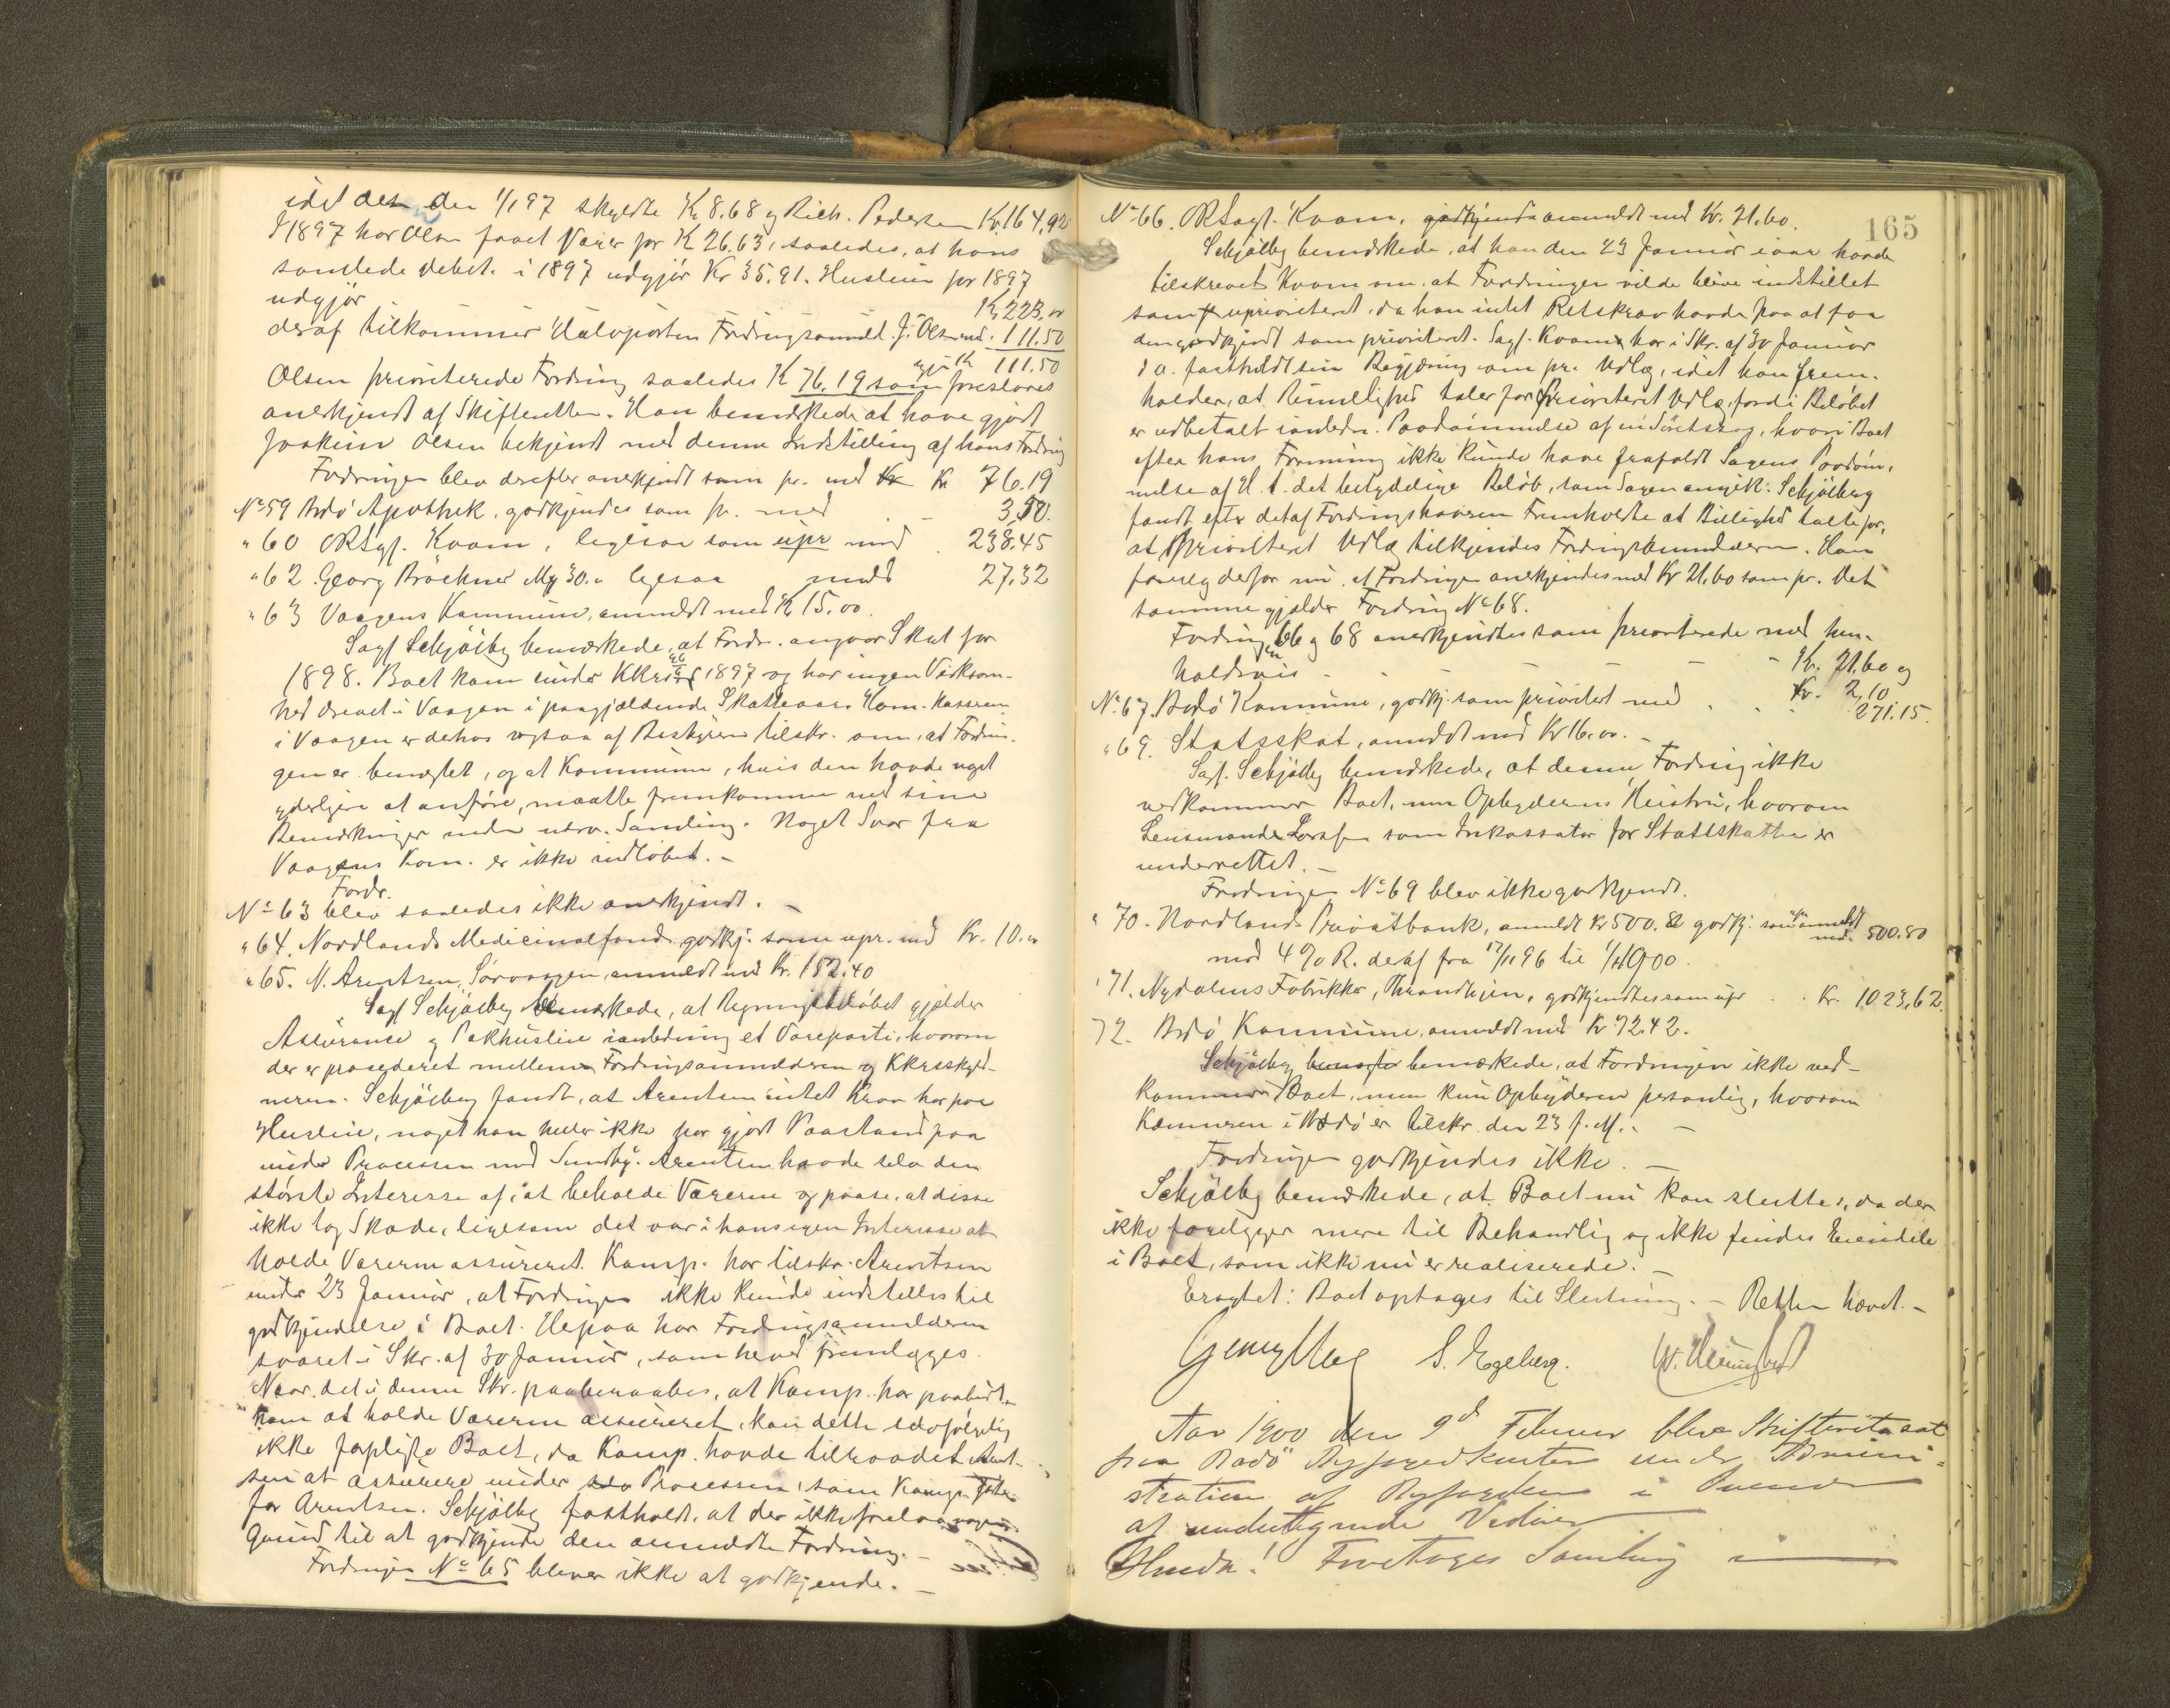 idet den den 1/1 97 skyldte Kr 8.68 og Rich. Pedersen Kr. 164,92
I 1897 har Olsen faaet Varer for Kr 26.63, saaledes, at hans
samlede debet i 1897 udgjør Kr 35.91. Husleie for 1897
udgjør Kr. 223,00
deraf tilkommer Halvparten Fordringsanmeld. J. Olsen med. 111.50
111.50
Olsen prioriterede Fordring saaledes Kr 76.19 som foreslaaes
anerkjendt af Skifteretten. Han bemærkede at have gjort
Joakim Olsen bekjendt med denne Indstilling af hans Fordring
Fordringen blev derefter anerkjendt som pr. med Kr 76.19
No 59 Bodø Apothek, godkjendes som pr. med 3,50.
" 60 ORSagf. Kvam, ligesaa som upr med 238,45
" 62 Georg Bröckner Mg 30. ligesaa med 27,32
" 63 Vaagens Kommune, anmeldt med Kr 15,00.
Sagf Schjölberg bemærkede, at Fordr. angaar Skat for
1898. Boet kom under Kkrs 1897 og har ingen Virksom-
hed drevet i Vaagen i paagjældende Skatteaar. Kom. Kasseren
i Vaagen er derhos ogsaa af Bestyreren tilskr. om, at Fordrin-
gen er benegtet, og at Kommunen, hvis den havde noget
yderligere at anføre, maatte fremkomme med sine
Bemærkninger inden nærv. Samling. Noget Svar fra
Vaagens Kom. er ikke indløbet. -
Fordr.
No 63 blev saaledes ikke anerkjendt. -
" 64. Nordlands Medicinalfond godkj. som upr. med Kr. 10.00
" 65. N. Arentsen, Sørvaagen, anmeldt med Kr. 152.40
Sagf Schjölberg bemærkede, at Regningsbeløbet gjælder
Assurance og Pakhusleie i anledning et Vareparti, hvorom
der er procederet mellem Fordringsanmelderen og Kkrsskyld-
neren. Schjölberg fandt, at Arentsen intet Krav har paa
Husleie, noget han heller ikke har gjort Paastand paa
under Processen med Sundby. Arentsen havde selv den
største Interesse af, at beholde Varerne og paase, at disse
ikke tog Skade, ligesom det var i hans egen Interesse at
holde Varerne assureret. Kamp. har tilskr. Arentsen
under 23 Januar, at Fordringen ikke kunde indstilles til
godkjendelse i Boet. Herpaa har Fordringsanmelderen
svaret i Skr. af 30 Januar, som herved fremlægges.
Naar det i denne Skr. paaberaabes, at Kamp. har paabudt
ham at holde Varerne assureret, kan dette selvfølgelig
ikke forpligte Boet, da Kamp. havde tilraadet Arent-
sen at assurere under Processen, som Kamp. førte
for Arentsen. Schjölberg fastholdt, at der ikke forelaa nogen
Grund til at godkjende den anmeldte Fordring. -
Fordringen No 65 bliver ikke at godkjende. -
165
No 66. ORSagf. Kvam, godkjendt anmeldt med Kr. 21.60.
Schjölberg bemærkede, at han den 23 Januar i aar havde
tilskrevet Kvam om, at Fordringen vilde blive indstillet
som uprioriteret, da han intet Retskrav havde paa at faa
den godkjendt som prioriteret. Sagf. Kvam har i Skr. af 30 Januar
d a. fastholdt sin Begjæring om pr. Udlæg, idet han frem-
holder, at Rimelighed taler for prioriteret Udlæg, fordi Beløbet
er udbetalt i anledn. Paadømmelse af en Söretssag, hvori Boet
efter hans Formening ikke kunde have frafaldt Sagens Paadøm-
melse af H. t. det betydelige Beløb, som Sagen angik. Schjölberg
fandt efter det af Fordringshaveren Fremholdte at Billighed talte for,
at prioriteret Udlæg tilkjendes Fordringsanmelderen. Han
foreslog derfor nu, at Fordringen anerkjendes med Kr 21.60 som pr. Det
samme gjælder Fordring No 68.
Fordringen 66 og 68 anerkjendtes som prioriterede med hen-
holdsvis - - - Kr. 21.60 og
Kr. 2,10
No 67. Bodø Kommune, godkj. som prioritet med 271.15.
" 69. Statsskat, anmeldt med Kr 16.00. -
Sagf. Schjölberg bemærkede, at denne Fordring ikke
vedkommer Boet, men Opbyderens Hustru, hvorom
Lensmanden som Inkassator for Statsskatten er
underrettet. -
Fordringen No 69 blev ikke godkjendt.
" 70. Nordlands Privatbank, anmeldt Kr 500.80 godkj. som anmeldt med 500.80
med 4 % R. deraf fra 17/11 96 til 1/1 1900.
" 71. Nydalens Fabrikker, Throndhjem, godkjendtes som upr . . Kr. 1023,62.
72. Bodø Kommune, anmeldt med Kr 72.42.
Schjölberg bemærkede, at Fordringen ikke ved-
kommer Boet, men kun Opbyderen personlig, hvorom
Kemneren i Bodø er tilskr. den 23 f. M. -
Fordringen godkjendes ikke. -
Schjölberg bemærkede, at Boet nu kan sluttes, da der
ikke foreligger mere til Behandling og ikke findes Eiendele
i Boet, som ikke nu er realiserede. -
Eragtet: Boet optages til Slutning. - Retten hævet. -
S. Egeberg.
Aar 1900 den 9d Februar blev Skifteret sat
paa Bodø Byfogedkontor under Admini-
stration af Byfogden i Overvær
af undertegnede Vidner
Hvorda! Foretoges Samling i